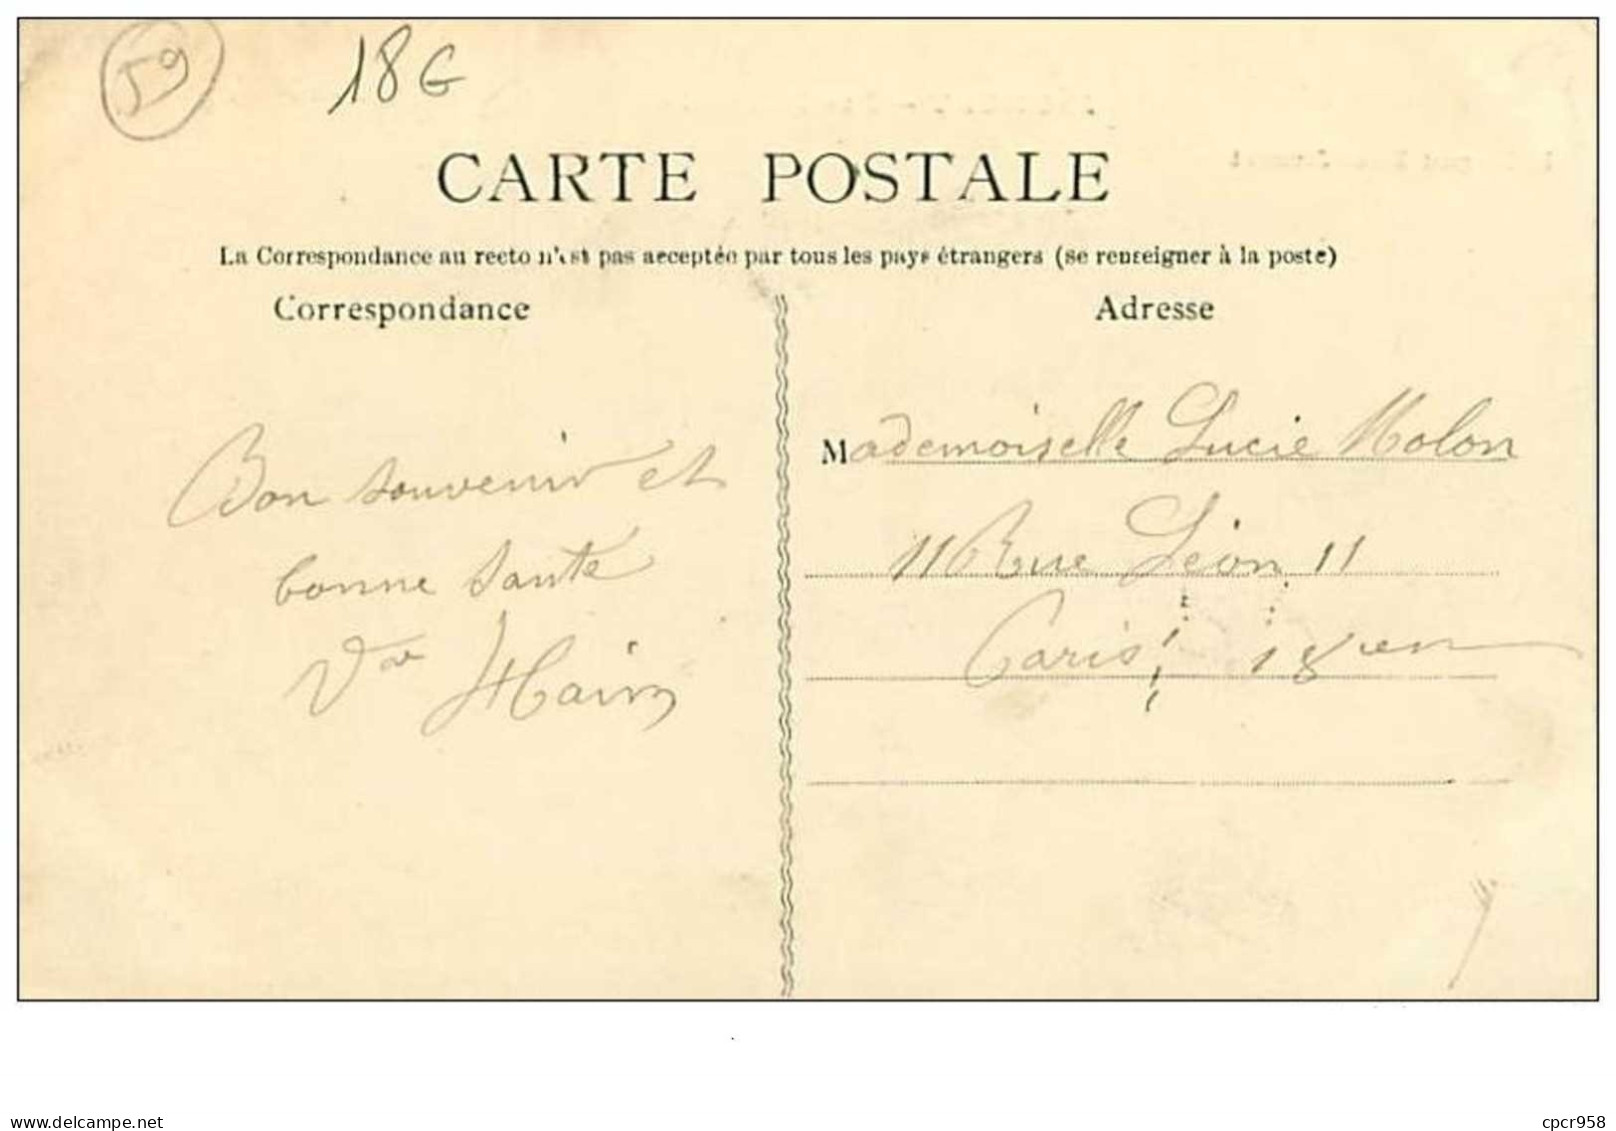 59
18 G
CARTE POSTALE
La Correspondance au recto n'est pas acceptée par tous les pays étrangers (se renseigner à la poste)
Correspondance
Adresse
Mademoiselle Lucie Molon
Bon souvenir et
11 Rue Léon 11
bonne santé
Paris 18
www.delcampe.net
cpcr958